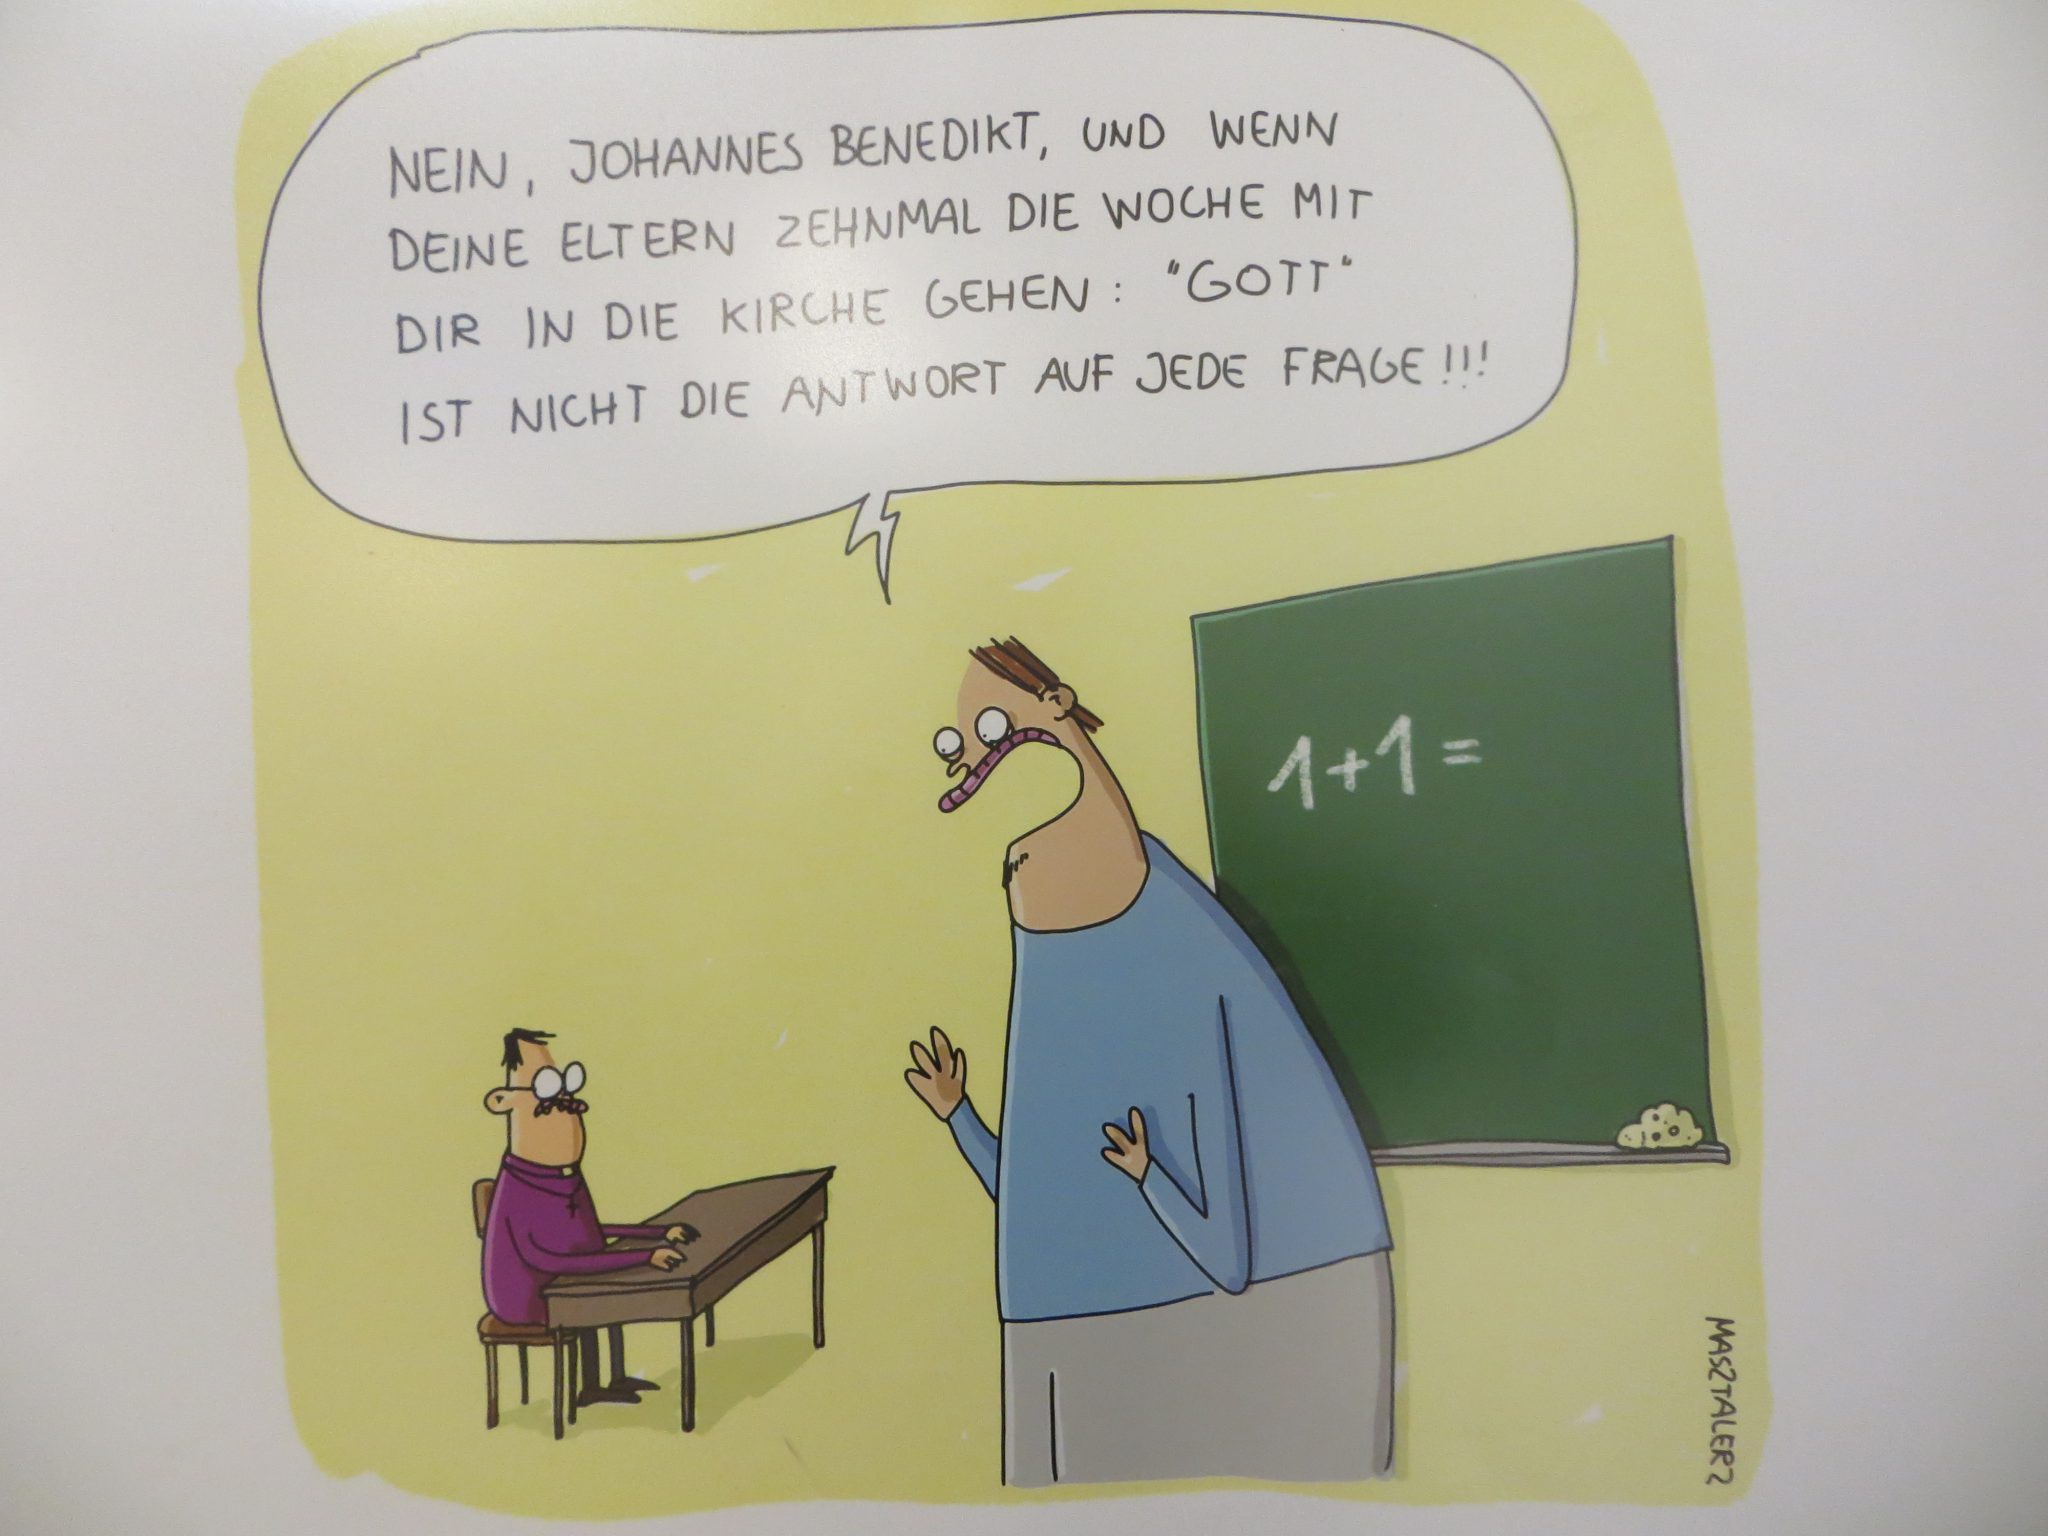 NEIN, JOHANNES BENEDIKT, UND WENN
DEINE ELTERN ZEHNMAL DIE WOCHE MIT
DIR IN DIE KIRCHE GEHEN: "GOTT"
IST NICHT DIE ANTWORT AUF JEDE FRAGE!!!
1+1=
MASZTALERZ